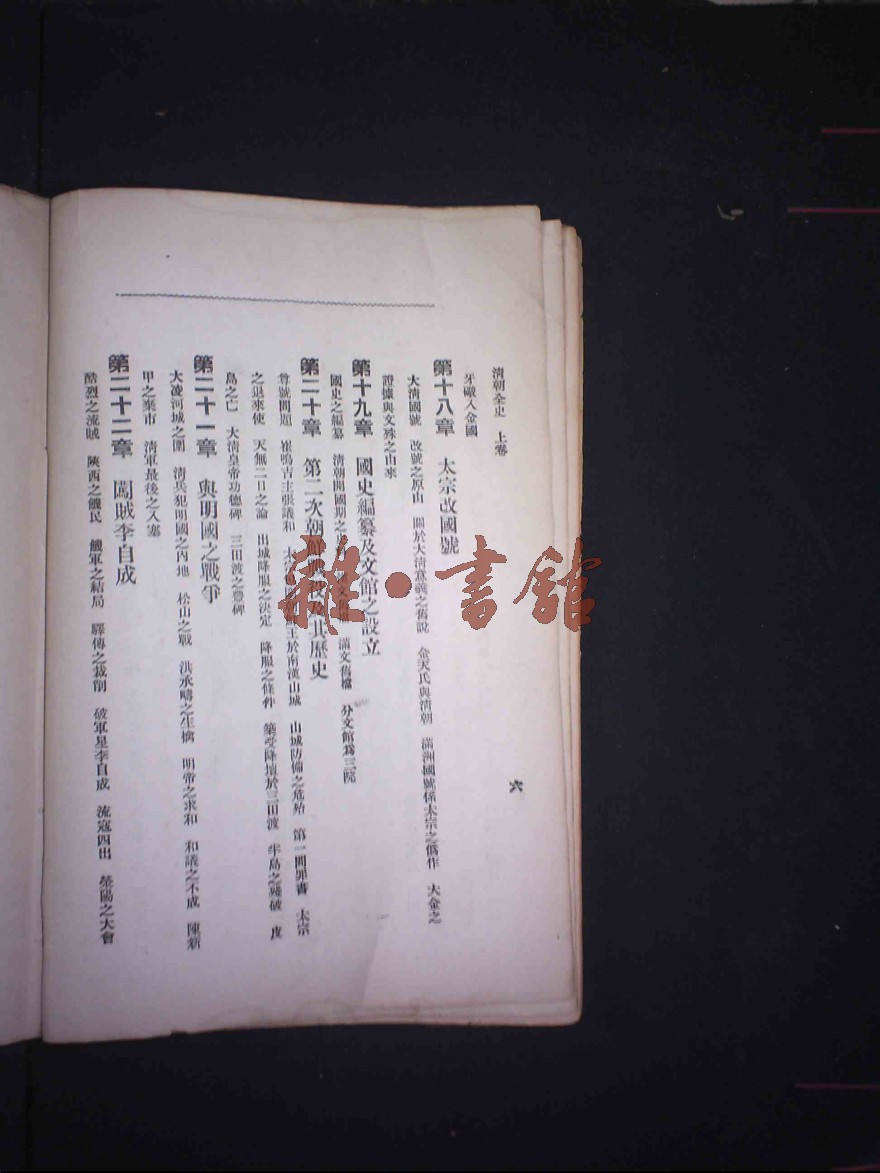 清朝全史 上卷
六
牙敵入金國
第十八章 太宗改國號
大淸國號 改號之原由 關於大淸意義之舊說 金天氏與淸朝 滿洲國號係太宗之僞作 大金之
證據與文殊之由來
第十九章 國史編纂及文館之設立
國史之編纂 淸朝開國期之 滿文舊檔 分文館爲三院
第二十章 第二次朝鮮 其歷史
尊號問題 崔鳴吉主張議和 太 主於南漢山城 山城防備之危殆 第一問罪書 太宗
之退來使 天無二日之論 出城降服之決定 降服之條件 築受降壇於三田渡 半島之殘破 皮
島之亡 大淸皇帝功德碑 三田渡之豐碑
第二十一章 與明國之戰爭
大凌河城之圍 淸兵犯明國之內地 松山之戰 洪承疇之生擒 明帝之求和 和議之不成 陳新
甲之棄市 淸軍最後之入塞
第二十二章 闖賊李自成
酷烈之流賊 陝西之饑民 饑軍之結局 驛傳之裁削 破軍星李自成 流寇四出 滎陽之大會
雜·書館